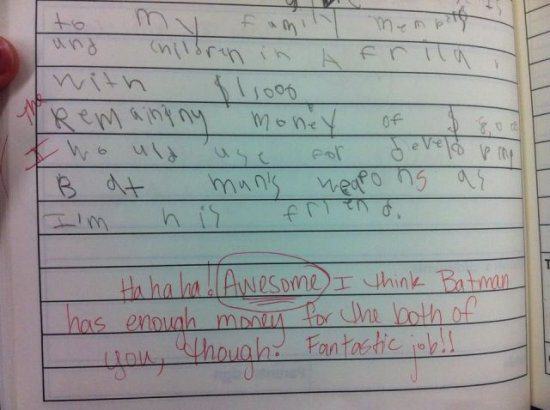 to my family members
and children in Africa,
with $1,000
the Remaining money of $8,000
I would use for developing
Batman's weapons as
I'm his friend.
Hahaha! Awesome I think Batman
has enough money for the both of
you, though. Fantastic job!!